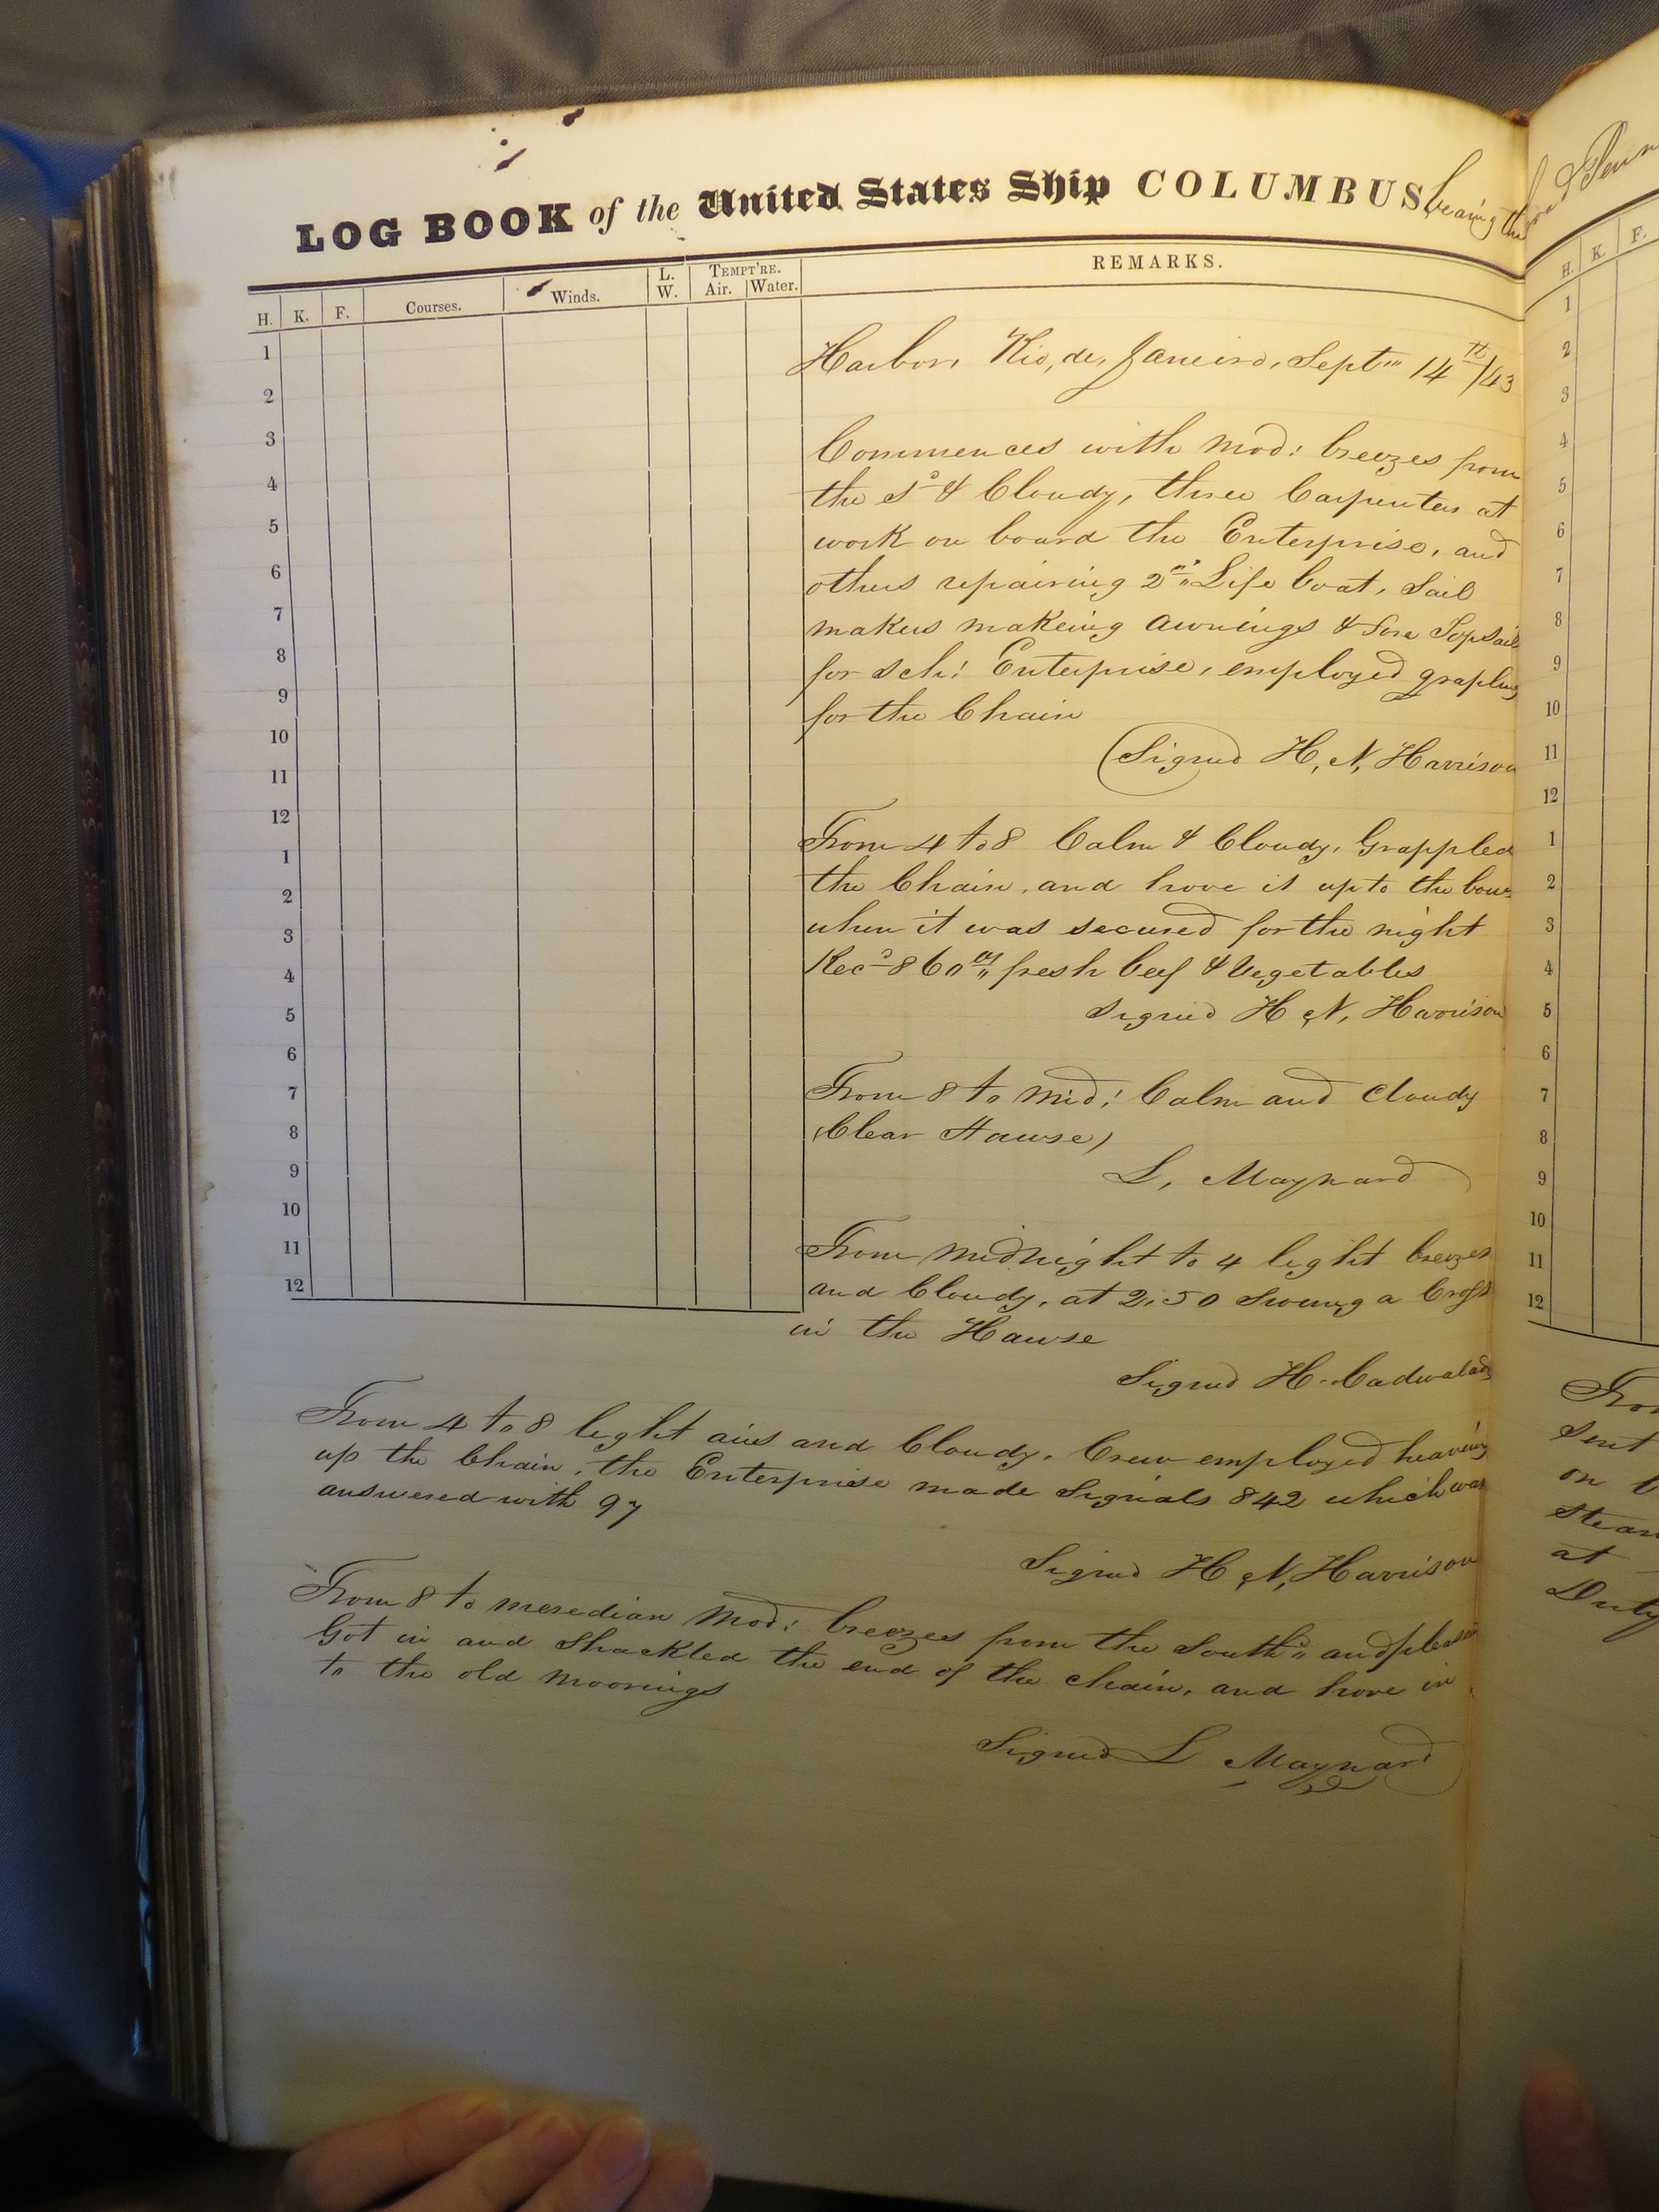 LOG BOOK of the United States Ship COLUMBUS bearing the
H. K. F. Courses. Winds. L. W. TEMPT'RE. Air. Water. REMARKS.
1
2
3
4
5
6
7
8
9
10
11
12
1
2
3
4
5
6
7
8
9
10
11
12
Harbor, Rio, de, Janeiro, Sept 14th/43
Commences with mod: breezes from
the Sd & Cloudy, three Carpenters at
work on board the Enterprise, and
others repairing 2nd Life boat, Sail
makers makeing Awnings & Fore Topsail
for Sch: Enterprise, employed grapling
for the Chain
(Signed H, N, Harrison
From 4 to 8 Calm & Cloudy, Grappled
the Chain, and hove it up to the bows
when it was secured for the night
Recd 860 lbs fresh beef & Vegetables
Signed H N, Harrison
From 8 to Mid: Calm and Cloudy
(Clear Hawse)
L, Maynard
From Midnight to 4 light breezes
and Cloudy, at 2.50 Swung a Cross
in the Hawse
Signed H. Cadwalader
From 4 to 8 light airs and Cloudy, Crew employed heaving
up the Chain, the Enterprise made Signals 842 which was
answered with 97
Signed H N, Harrison
From 8 to meredian Mod: breezes from the South'd and pleasant
Got in and Shackled the end of the chain, and hove in
to the old Moorings
Signed L Maynard
H. K. F.
1
2
3
4
5
6
7
8
9
10
11
12
1
2
3
4
5
6
7
8
9
10
11
12
Sent
on
at
Duty